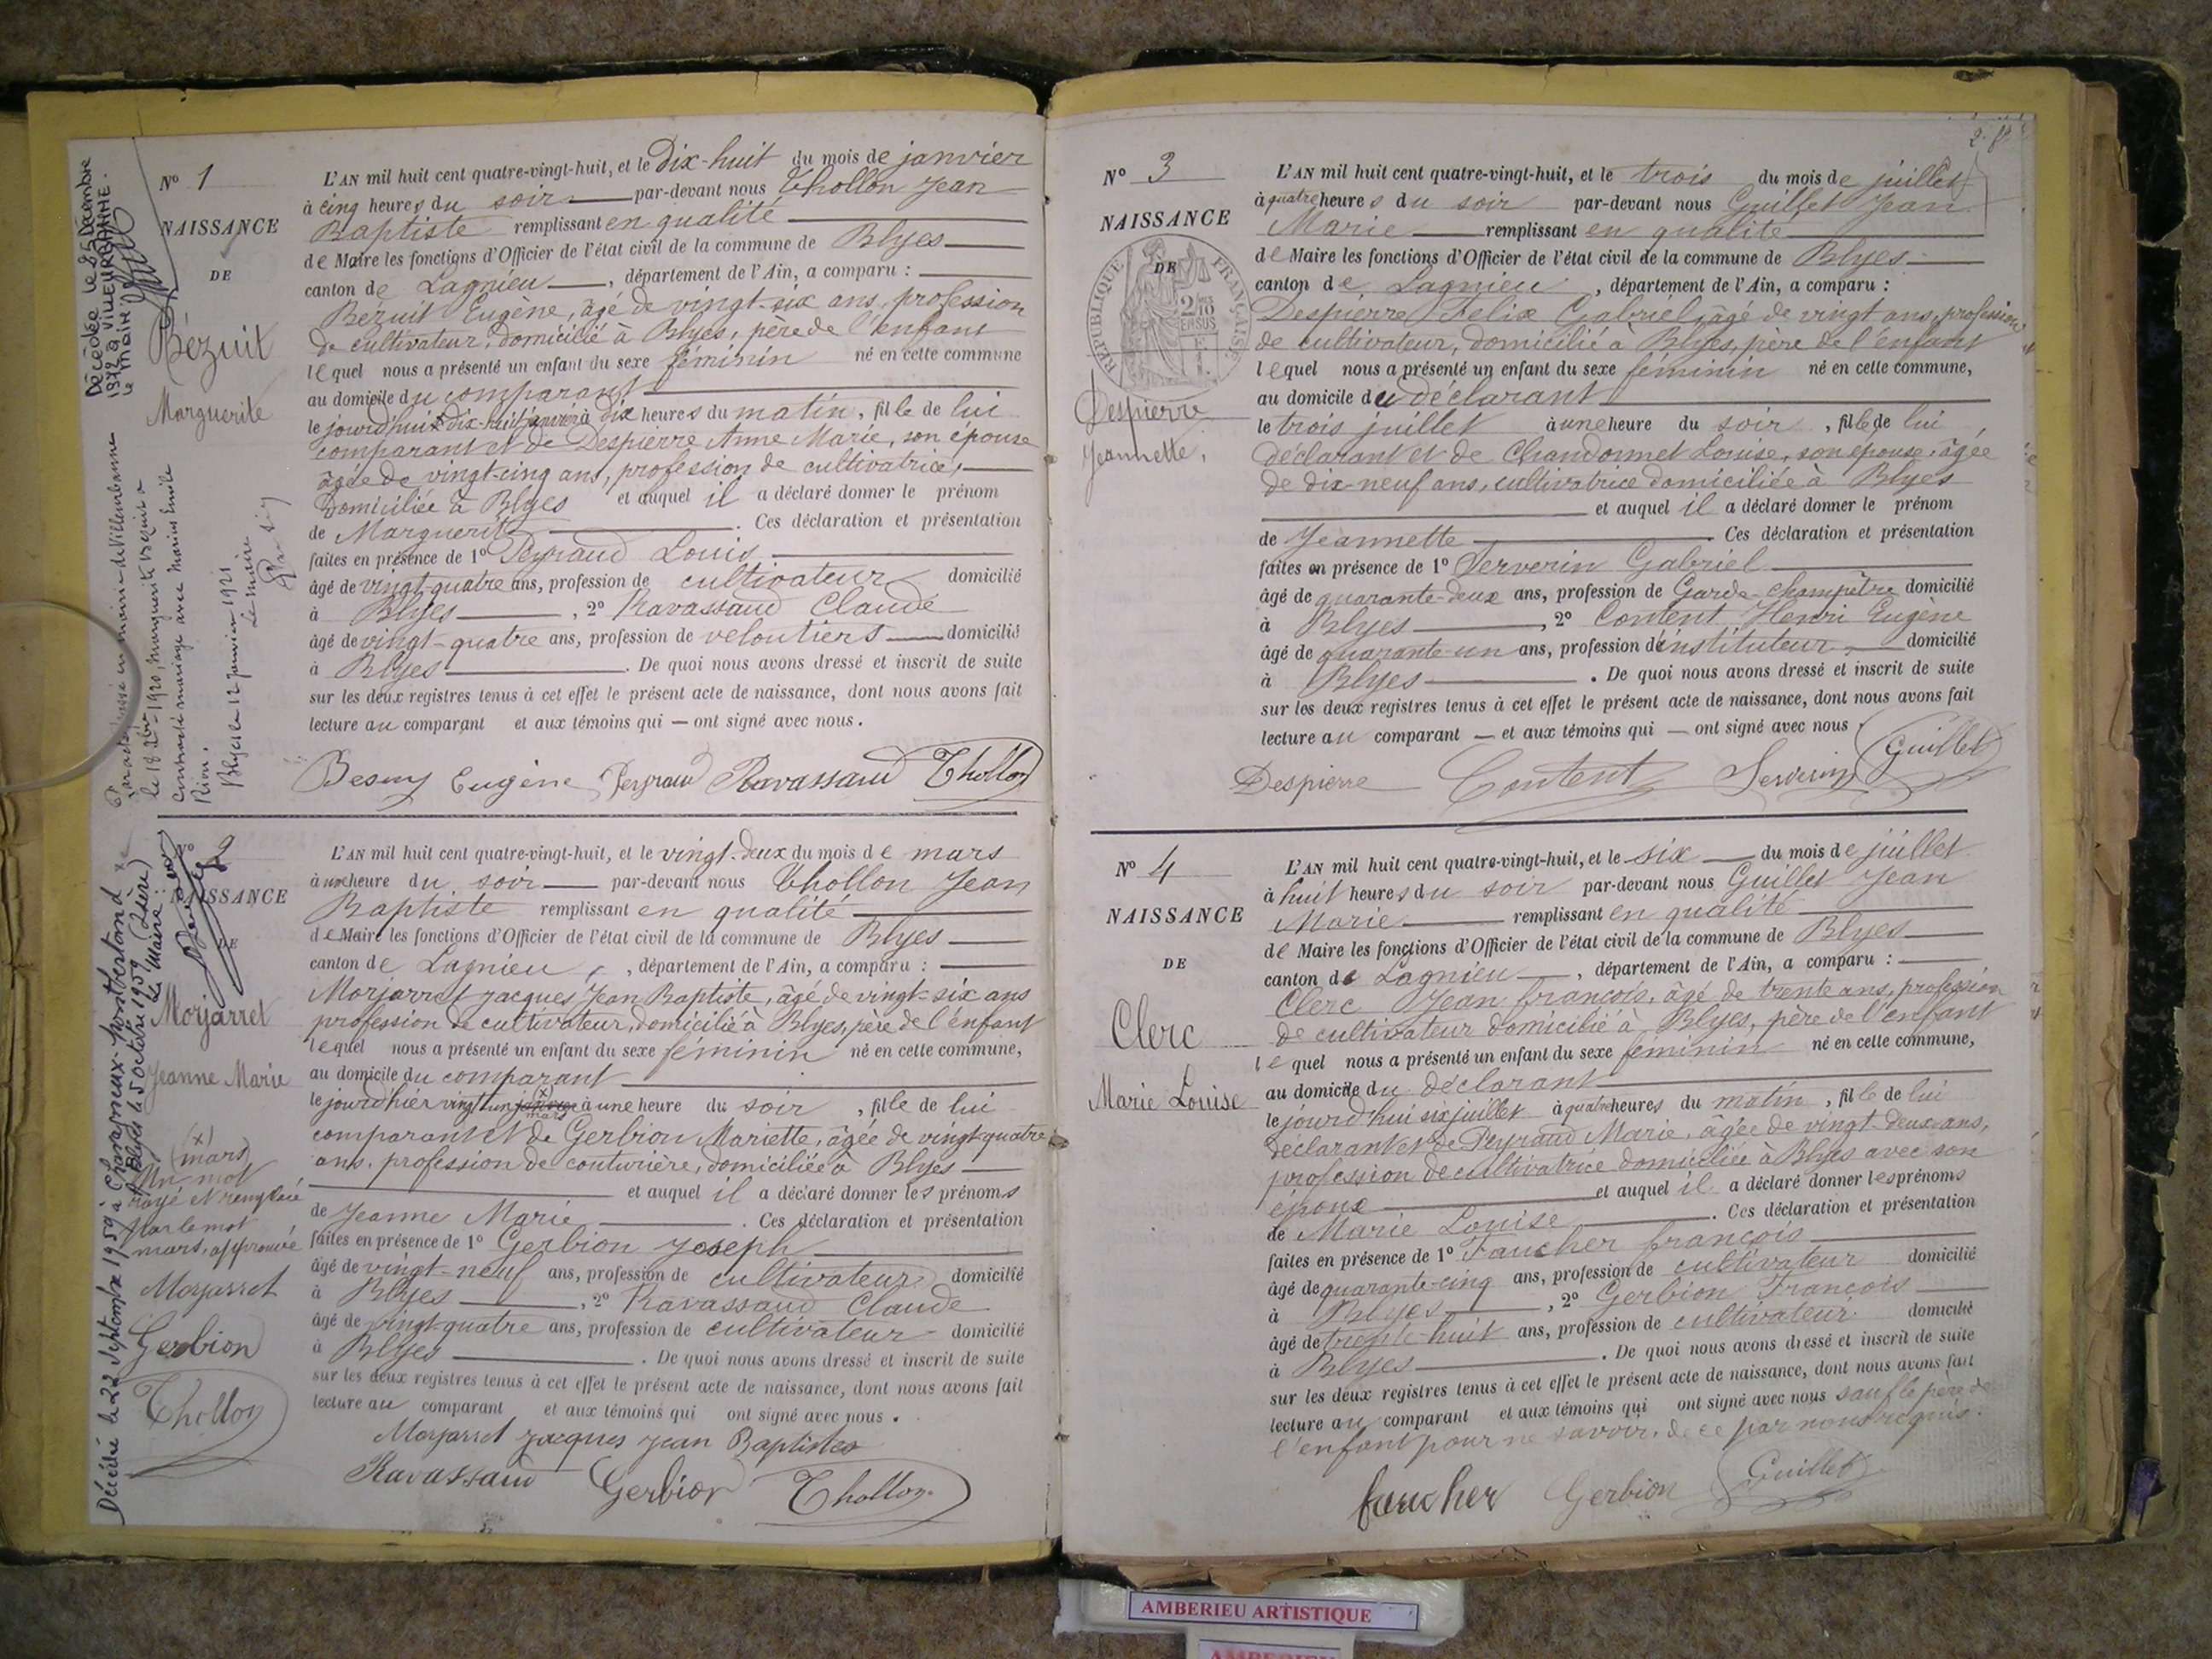 Nº 1
NAISSANCE
DE
Bézuit
Marguerite
Décédée le 25 Décembre
1972 à VILLEURBANNE.
le Maire
Par acte dressé en mairie de Villeurbanne
le 18 Xbre 1920, Marguerite Bézuit a
contracté mariage avec Marius Emile
Rion.
Blyes le 12 janvier 1921
Le Maire
L'AN mil huit cent quatre-vingt-huit, et le Dix-huit du mois de janvier
à cinq heures du soir par-devant nous Thollon Jean
Baptiste remplissant en qualité
de Maire les fonctions d'Officier de l'état civil de la commune de Blyes
canton de Lagnieu, département de l'Ain, a comparu :
Bézuit Eugène, âgé de vingt-six ans, profession
de cultivateur, domicilié à Blyes, père de l'enfant
lequel nous a présenté un enfant du sexe féminin né en cette commune
au domicile du comparant
le jourd'hui dix-huit janvier à dix heures du matin, fille de lui
comparant et de Despierre Anne Marie, son épouse
âgée de vingt-cinq ans, profession de cultivatrice,
domiciliée à Blyes et auquel il a déclaré donner le prénom
de Marguerite. Ces déclaration et présentation
faites en présence de 1º Peyraud Louis
âgé de vingt-quatre ans, profession de cultivateur domicilié
à Blyes, 2º Ravassaud Claude
âgé de vingt-quatre ans, profession de veloutiers domicilié
à Blyes. De quoi nous avons dressé et inscrit de suite
sur les deux registres tenus à cet effet le présent acte de naissance, dont nous avons fait
lecture au comparant et aux témoins qui — ont signé avec nous.
Besuy Eugène Peyraud Ravassaud Thollon
Nº 2
NAISSANCE
DE
Morjarret
Jeanne Marie
Décédée le 22 Septembre 1959 à Charvieux
Blyes le 5 octobre 1959
Le Maire
(x)
(mars)
Un mot
rayé et remplacé
par le mot
mars, approuvé
Morjarret
Gerbion
Thollon
L'AN mil huit cent quatre-vingt-huit, et le vingt-deux du mois de mars
à une heure du soir par-devant nous Thollon Jean
Baptiste remplissant en qualité
de Maire les fonctions d'Officier de l'état civil de la commune de Blyes
canton de Lagnieu, département de l'Ain, a comparu :
Morjarret Jacques Jean Baptiste, âgé de vingt-six ans
profession de cultivateur, domicilié à Blyes, père de l'enfant
lequel nous a présenté un enfant du sexe féminin né en cette commune,
au domicile du comparant
le jourd'hier vingt un (x) mars à une heure du soir, fille de lui
comparant et de Gerbion Mariette, âgée de vingt-quatre
ans, profession de couturière, domiciliée à Blyes
et auquel il a déclaré donner les prénoms
de Jeanne Marie. Ces déclaration et présentation
faites en présence de 1º Gerbion Joseph
âgé de vingt-neuf ans, profession de cultivateur domicilié
à Blyes, 2º Ravassaud Claude
âgé de vingt-quatre ans, profession de cultivateur domicilié
à Blyes. De quoi nous avons dressé et inscrit de suite
sur les deux registres tenus à cet effet le présent acte de naissance, dont nous avons fait
lecture au comparant et aux témoins qui ont signé avec nous.
Morjarret Jacques Jean Baptistes
Ravassaud Gerbion Thollon
Nº 3
NAISSANCE
DE
RÉPUBLIQUE FRANÇAISE
Despierre
Jeannette,
L'AN mil huit cent quatre-vingt-huit, et le trois du mois de juillet
à quatre heures du soir par-devant nous Guillet Jean
Marie remplissant en qualité
de Maire les fonctions d'Officier de l'état civil de la commune de Blyes
canton de Lagnieu, département de l'Ain, a comparu :
Despierre Félix Gabriel, âgé de vingt ans, profession
de cultivateur, domicilié à Blyes, père de l'enfant
lequel nous a présenté un enfant du sexe féminin né en cette commune,
au domicile du déclarant
le trois juillet à une heure du soir, fille de lui
déclarant et de Chandonnet Louise, son épouse, âgée
de dix-neuf ans, cultivatrice domiciliée à Blyes
et auquel il a déclaré donner le prénom
de Jeannette. Ces déclaration et présentation
faites en présence de 1º Serverin Gabriel
âgé de quarante-deux ans, profession de Garde-champêtre domicilié
à Blyes, 2º Content Henri Eugène
âgé de quarante-un ans, profession d'instituteur, domicilié
à Blyes. De quoi nous avons dressé et inscrit de suite
sur les deux registres tenus à cet effet le présent acte de naissance, dont nous avons fait
lecture au comparant — et aux témoins qui — ont signé avec nous
Despierre Content Serverin Guillet
Nº 4
NAISSANCE
DE
Clerc
Marie Louise
L'AN mil huit cent quatre-vingt-huit, et le six du mois de juillet
à huit heures du soir par-devant nous Guillet Jean
Marie remplissant en qualité
de Maire les fonctions d'Officier de l'état civil de la commune de Blyes
canton de Lagnieu, département de l'Ain, a comparu :
Clerc Jean François, âgé de trente ans, profession
de cultivateur domicilié à Blyes, père de l'enfant
lequel nous a présenté un enfant du sexe féminin né en cette commune,
au domicile du déclarant
le jourd'hui six juillet à quatre heures du matin, fille de lui
déclarant et de Peyraud Marie, âgée de vingt-deux ans,
profession de cultivatrice domiciliée à Blyes avec son
époux et auquel il a déclaré donner les prénoms
de Marie Louise. Ces déclaration et présentation
faites en présence de 1º Faucher François
âgé de quarante-cinq ans, profession de cultivateur domicilié
à Blyes, 2º Gerbion François
âgé de trente-huit ans, profession de cultivateur domicilié
à Blyes. De quoi nous avons dressé et inscrit de suite
sur les deux registres tenus à cet effet le présent acte de naissance, dont nous avons fait
lecture au comparant et aux témoins qui ont signé avec nous sauf le père de
l'enfant pour ne savoir, de ce par nous requis.
faucher Gerbion Guillet
AMBERIEU ARTISTIQUE
AMBERIEU